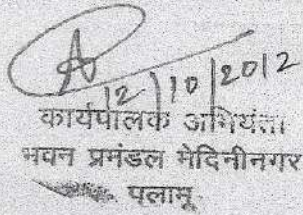 A
12/10/2012
कार्यपालक अभियंता
भवन प्रमंडल मेदिनीनगर
पलामू